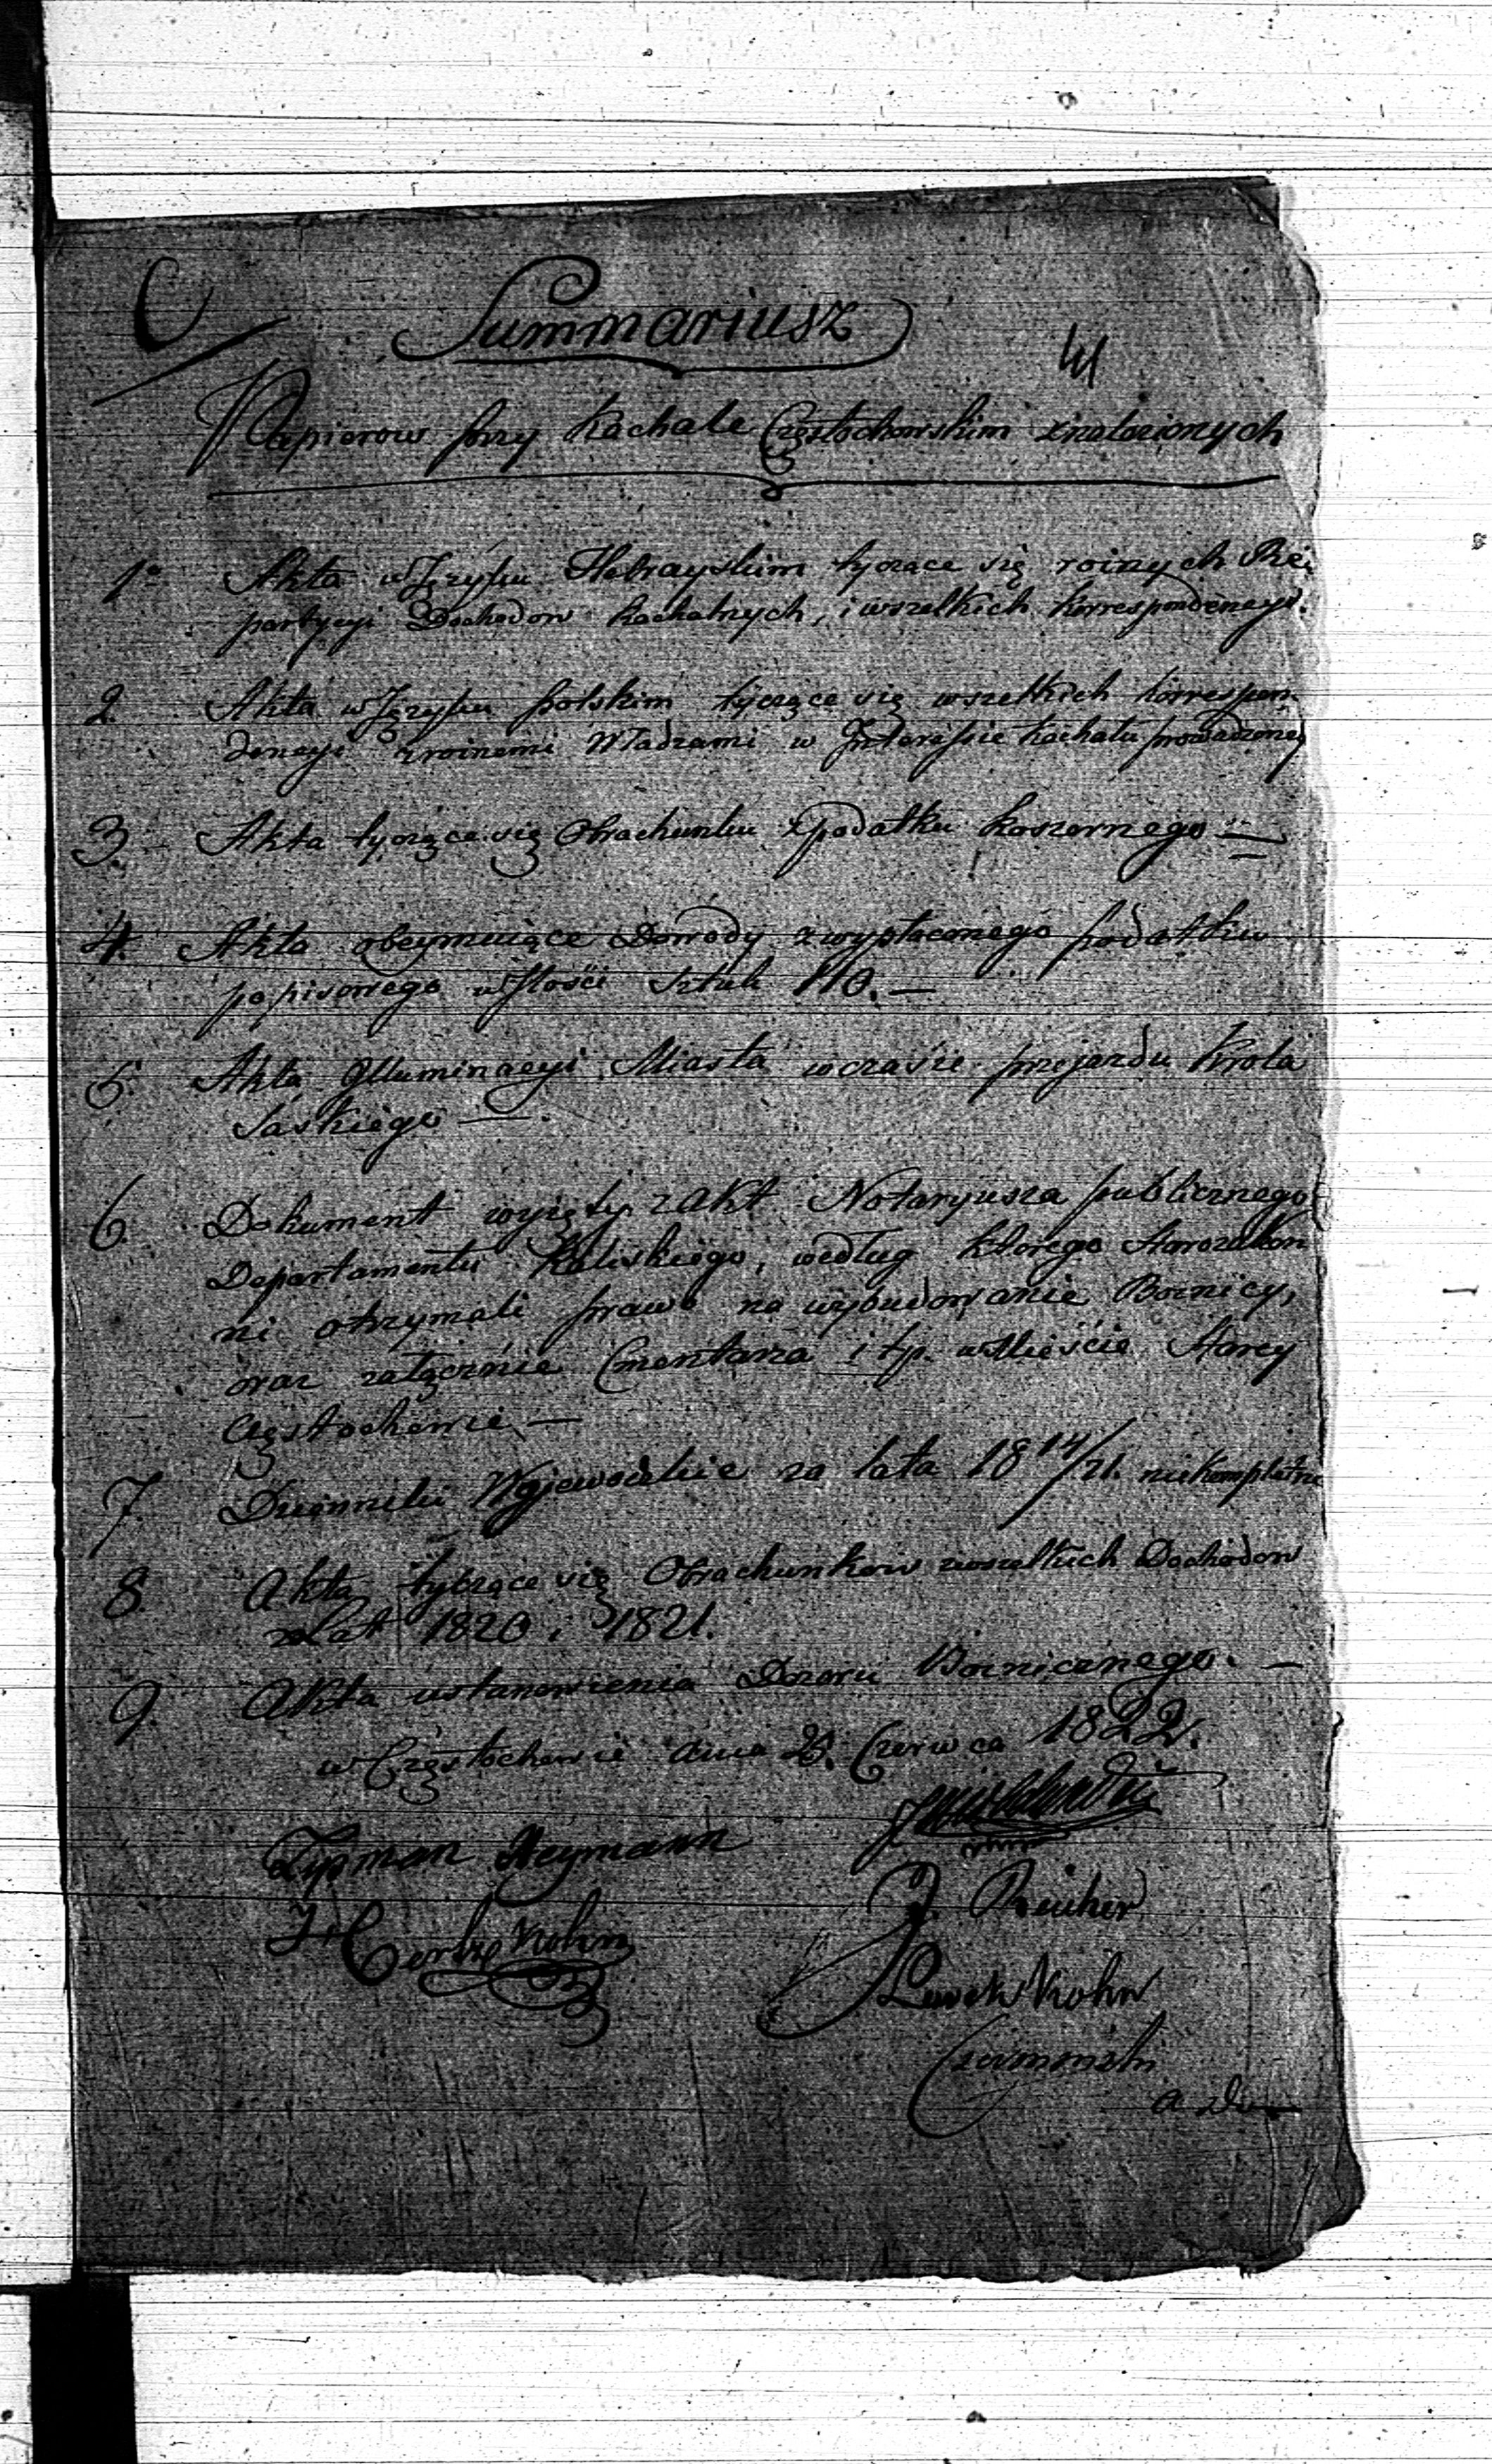 C
Summariusz
41
Papierow przy Kachale Częstochowskim znalezionych
1º Akta w Języku Hebrayskim tyczące się roznych Re-
partycyi Dochodow Kachalnych, i wszelkich korrespondencyi.
2. Akta w Języku polskim tyczące się wszelkich korrespon-
dencyi z roznemi Władzami w Interessie Kachału prowadzoney
3. Akta tyczące się Obrachunku z podatku koszernego —
4. Akta obeymuiące Dowody z wypłaconego podatku
popisowego w Ilości sztuk 110. —
5. Akta Illuminacyi Miasta w czasie przejazdu Krola
Saskiego —.
6. Dokument wyjęty z Akt Notaryusza publicznego
Departamentu Kaliskiego, według ktorego Starozakon
ni otrzymali prawo na wybudowanie Boznicy,
oraz załączenie Cmentarza i t.p. w Mieście Starey
Częstochowie —
7. Dzienniki Wojewodzkie za lata 18 14/21. niekompletne
8. Akta tyczące się Obrachunkow z wszelkich Dochodow
z Lat 1820 i 1821.
9. Akta ustanowienia Dozoru Boznicznego. —
w Częstochowie dnia Czerwca 1822.
Zysman Heymann
J. Reicher
Kohn
Kohn